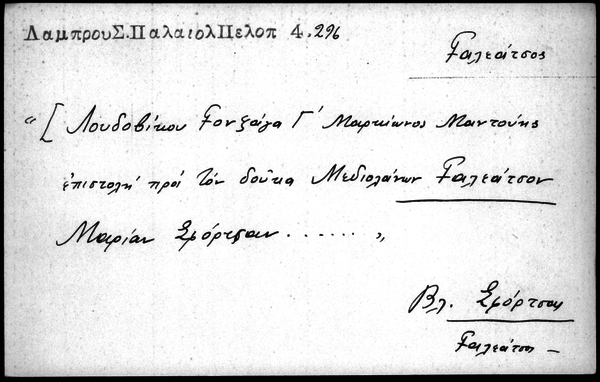 ΛαμπρουΣ.ΠαλαιολΠελοπ 4.296
Γαλεάτσος
“[ Λουδοβίκου Γονζάγα Γ΄ Μαρκίωνος Μαντούης
ἐπιστολὴ πρὸς τὸν δοῦκα Μεδιολάνων Γαλεάτσον
Μαρίαν Σφόρτσαν . . . . . . „
Βλ. Σφόρτσας
Γαλεάτσος –